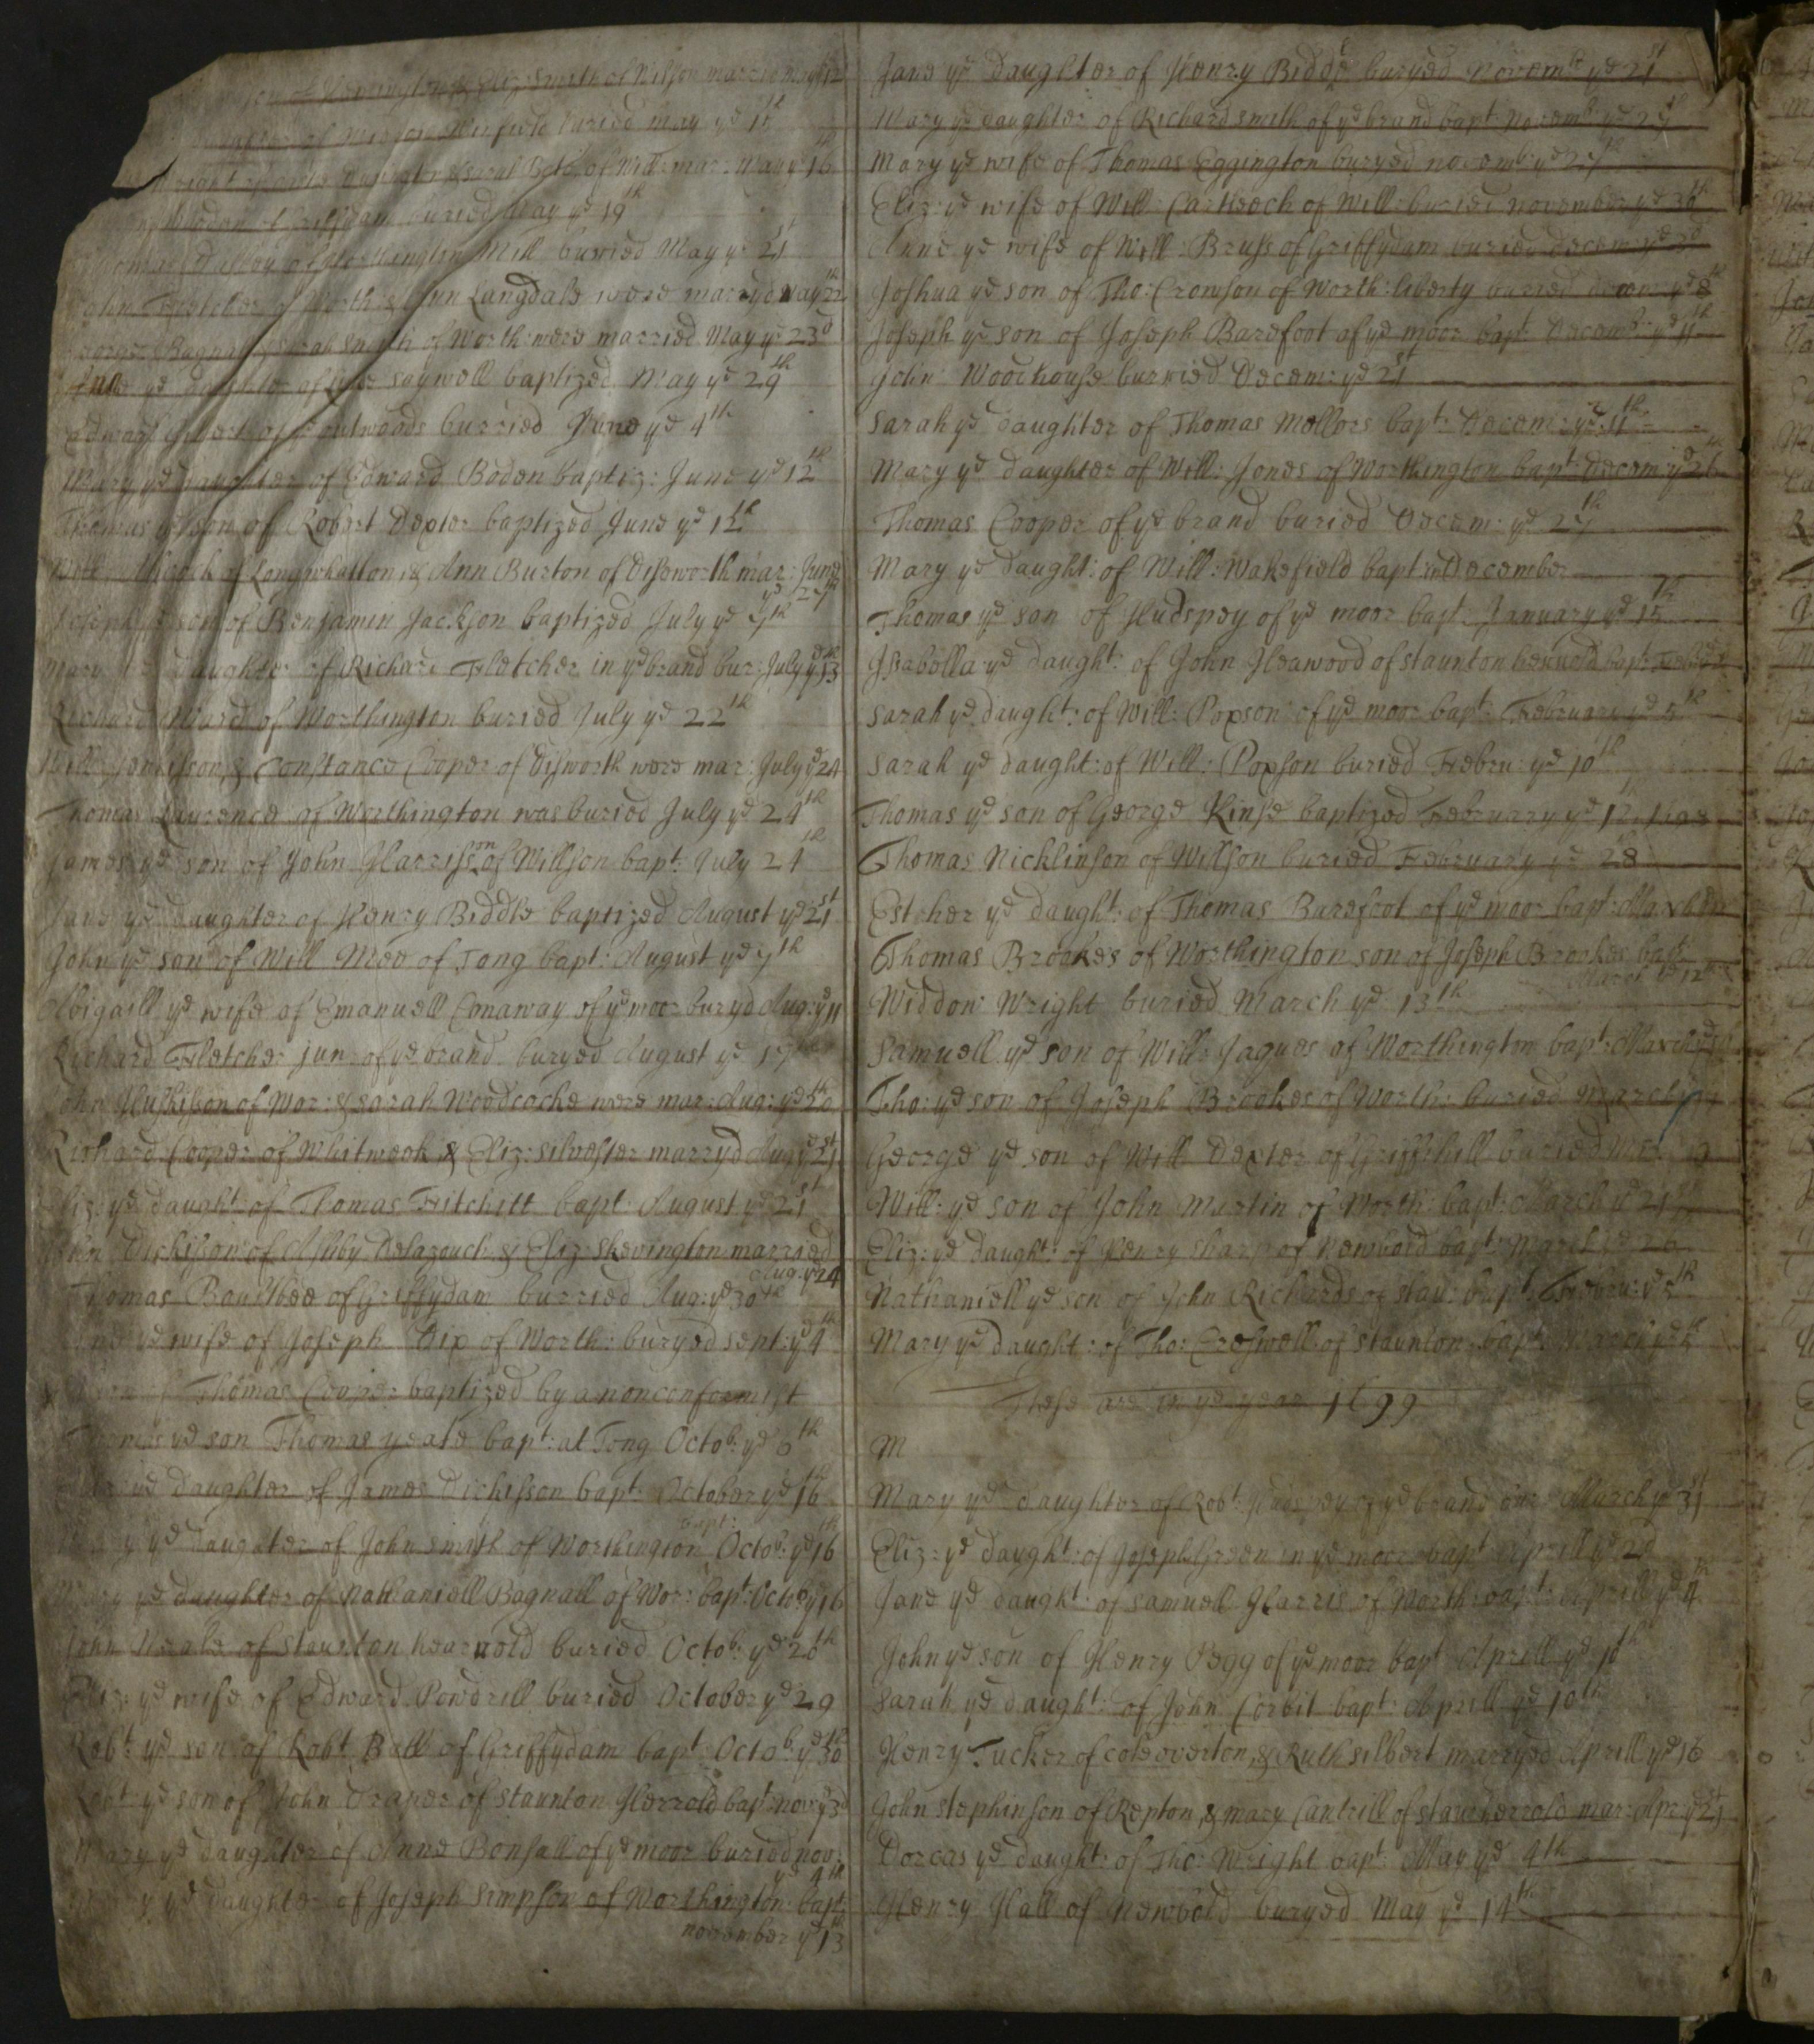 Eliz: Smith of Wilson married May 12
buried May yᵉ 15th
mar: May yᵉ 16
buried May yᵉ 19th
Mill buried May yᵉ 21st
John Fletcher of Worth: & Ann Langdale were marryd May 22th
Bagnall & Sarah Smith of Worth: were married May yᵉ 23d
Saywell baptized May yᵉ 29th
Edward outwoods burried June yᵉ 4th
Mary yᵉ daughter of Edward Boden baptiz: June yᵉ 12th
Thomas yᵉ son of Robert Dexter baptized June yᵉ 12th
of Longwhatton & Ann Burton of Disworth mar: June
yᵉ 27th
Joseph yᵉ son of Benjamin Jackson baptized July yᵉ 7th
Mary yᵉ daughter of Richard Fletcher in yᵉ brand bur: July yᵉ 13th
Richard Ward of Worthington buried July yᵉ 22th
Will: & Constance Cooper of Disworth were mar: July yᵉ 24
Thomas Laurence of Worthington was buried July yᵉ 24th
James yᵉ son of John Harrison of Willson bapt: July 24th
Jane yᵉ daughter of Henry Biddle baptized August yᵉ 21st
John yᵉ son of Will Mee of Tong bapt: August yᵉ 7th
Abigaill yᵉ wife of Emanuell Conaway of yᵉ moor buryd Aug: yᵉ 11
Richard Fletcher jun: of yᵉ brand buryed August yᵉ 17th
John of Wor: & Sarah Woodcocke were mar: Aug: yᵉ 20th
Richard Cooper of Whitweek & Eliz: Silvester marryd Aug yᵉ 21st
Eliz: yᵉ daught: of Thomas Fitchett bapt: August yᵉ 21st
John Dickisson of Ashby Delazouch & Eliz: Skevington married
Aug: yᵉ 24
Thomas of Griffydam burried Aug: yᵉ 30th
yᵉ wife of Joseph Dix of Worth: buryed Sept: yᵉ 4th
Thomas Cooper baptized by a nonconformist
Thomas yᵉ son Thomas yeate bapt: at Tong Octob: yᵉ 6th
yᵉ daughter of James Dickisson bapt: October yᵉ 16th
yᵉ daughter of John Smith of Worthington bapt: Octob: yᵉ 16th
yᵉ daughter of Nathaniell Bagnall of Wor: bapt: Octob yᵉ 16
John of Staunton hearrold buried Octob: yᵉ 20th
Eliz: yᵉ wife of Edward Powdrill buried October yᵉ 29
Robt: yᵉ son of Robt Ball of Griffydam bapt: Octob: yᵉ 30th
Robt yᵉ son of John of Staunton Herrold bapt: nov: yᵉ 3d
Mary yᵉ daughter of Anne Bonsall of yᵉ moor buried nov:
yᵉ 4th
Mary yᵉ daughter of Joseph Simpson of Worthington bapt:
november yᵉ 13th
Jane yᵉ daughter of Henry Biddle buryed Novemb: yᵉ 21st
Mary yᵉ daughter of Richard Smith of yᵉ brand bapt: Novemb: yᵉ 27th
Mary yᵉ wife of Thomas Eggington buryed novemb: yᵉ 27th
Eliz: yᵉ wife of Will: of Will: buried november yᵉ 30th
Anne yᵉ wife of Will: of Griffydam buried Decem: yᵉ 3d
Joshua yᵉ son of Tho: Crowson of Worth: liberty buried decem: yᵉ 8th
Joseph yᵉ son of Joseph Barefoot of yᵉ moor bapt: Decemb: yᵉ 11th
John Woodhouse burried Decem: yᵉ 21st
Sarah yᵉ daughter of Thomas Mellors bapt: Decem: yᵉ 11th
Mary yᵉ daughter of Will: Jones of Worthington bapt: Decem: yᵉ 26th
Thomas Cooper of yᵉ brand buried Decem: yᵉ 27th
Mary yᵉ daught: of Will: Wakefield bapt in December
Thomas yᵉ son of Hudspey of yᵉ moor bapt: January yᵉ 15th
Isabella yᵉ daught: of John Heawood of Staunton bapt:
Sarah yᵉ daught: of Will: Popson of yᵉ moor bapt: February yᵉ 5th
Sarah yᵉ daught: of Will: Popson buried Febru: yᵉ 10th
Thomas yᵉ son of George Kinse baptized February yᵉ 12th
Thomas Nicklinson of Willson buried February yᵉ 28
Estcher yᵉ daught: of Thomas Barefoot of yᵉ moor bapt:
Thomas Brookes of Worthington son of Joseph Brookes bapt:
March yᵉ 12th
Widdow Wright buried March yᵉ 13th
Samuell yᵉ son of Will: Jaques of Worthington bapt: March
Tho: yᵉ son of Joseph Brookes of Worth: buried March
George yᵉ son of Will Dexter of Griff: hill buried
Will: yᵉ son of John Martin of Worth: bapt: March yᵉ 21st
Eliz: yᵉ daught: of Henry Sharp of Newbold bapt: March yᵉ 26
Nathaniell yᵉ son of John Richards of Stau: bapt: Febru: yᵉ 5th
Mary yᵉ daught: of Tho: Creswell of Staunton bapt: March yᵉ 5th
These are in yᵉ year 1699
M
Mary yᵉ daughter of Robt: Hudspey of yᵉ brand bur: March yᵉ 31st
Eliz: yᵉ daught: of Joseph Green in yᵉ moor bapt: Aprill yᵉ 2d
Jane yᵉ daught: of Samuell Harris of Worth: bapt: Aprill yᵉ 4th
John yᵉ son of Henry Pegg of yᵉ moor bapt: Aprill yᵉ 10th
Sarah yᵉ daught: of John Corbit bapt: Aprill yᵉ 10th
Henry Tucker of coleoverton & Ruth Silbert marryed Aprill yᵉ 16
John Stephinson of Repton & Mary Cantrill of Staun: herrold mar: Apr: yᵉ 21st
Dorcas yᵉ daught: of Tho: Wright bapt: May yᵉ 4th
Henry Hall of Newbold buryed May yᵉ 14th